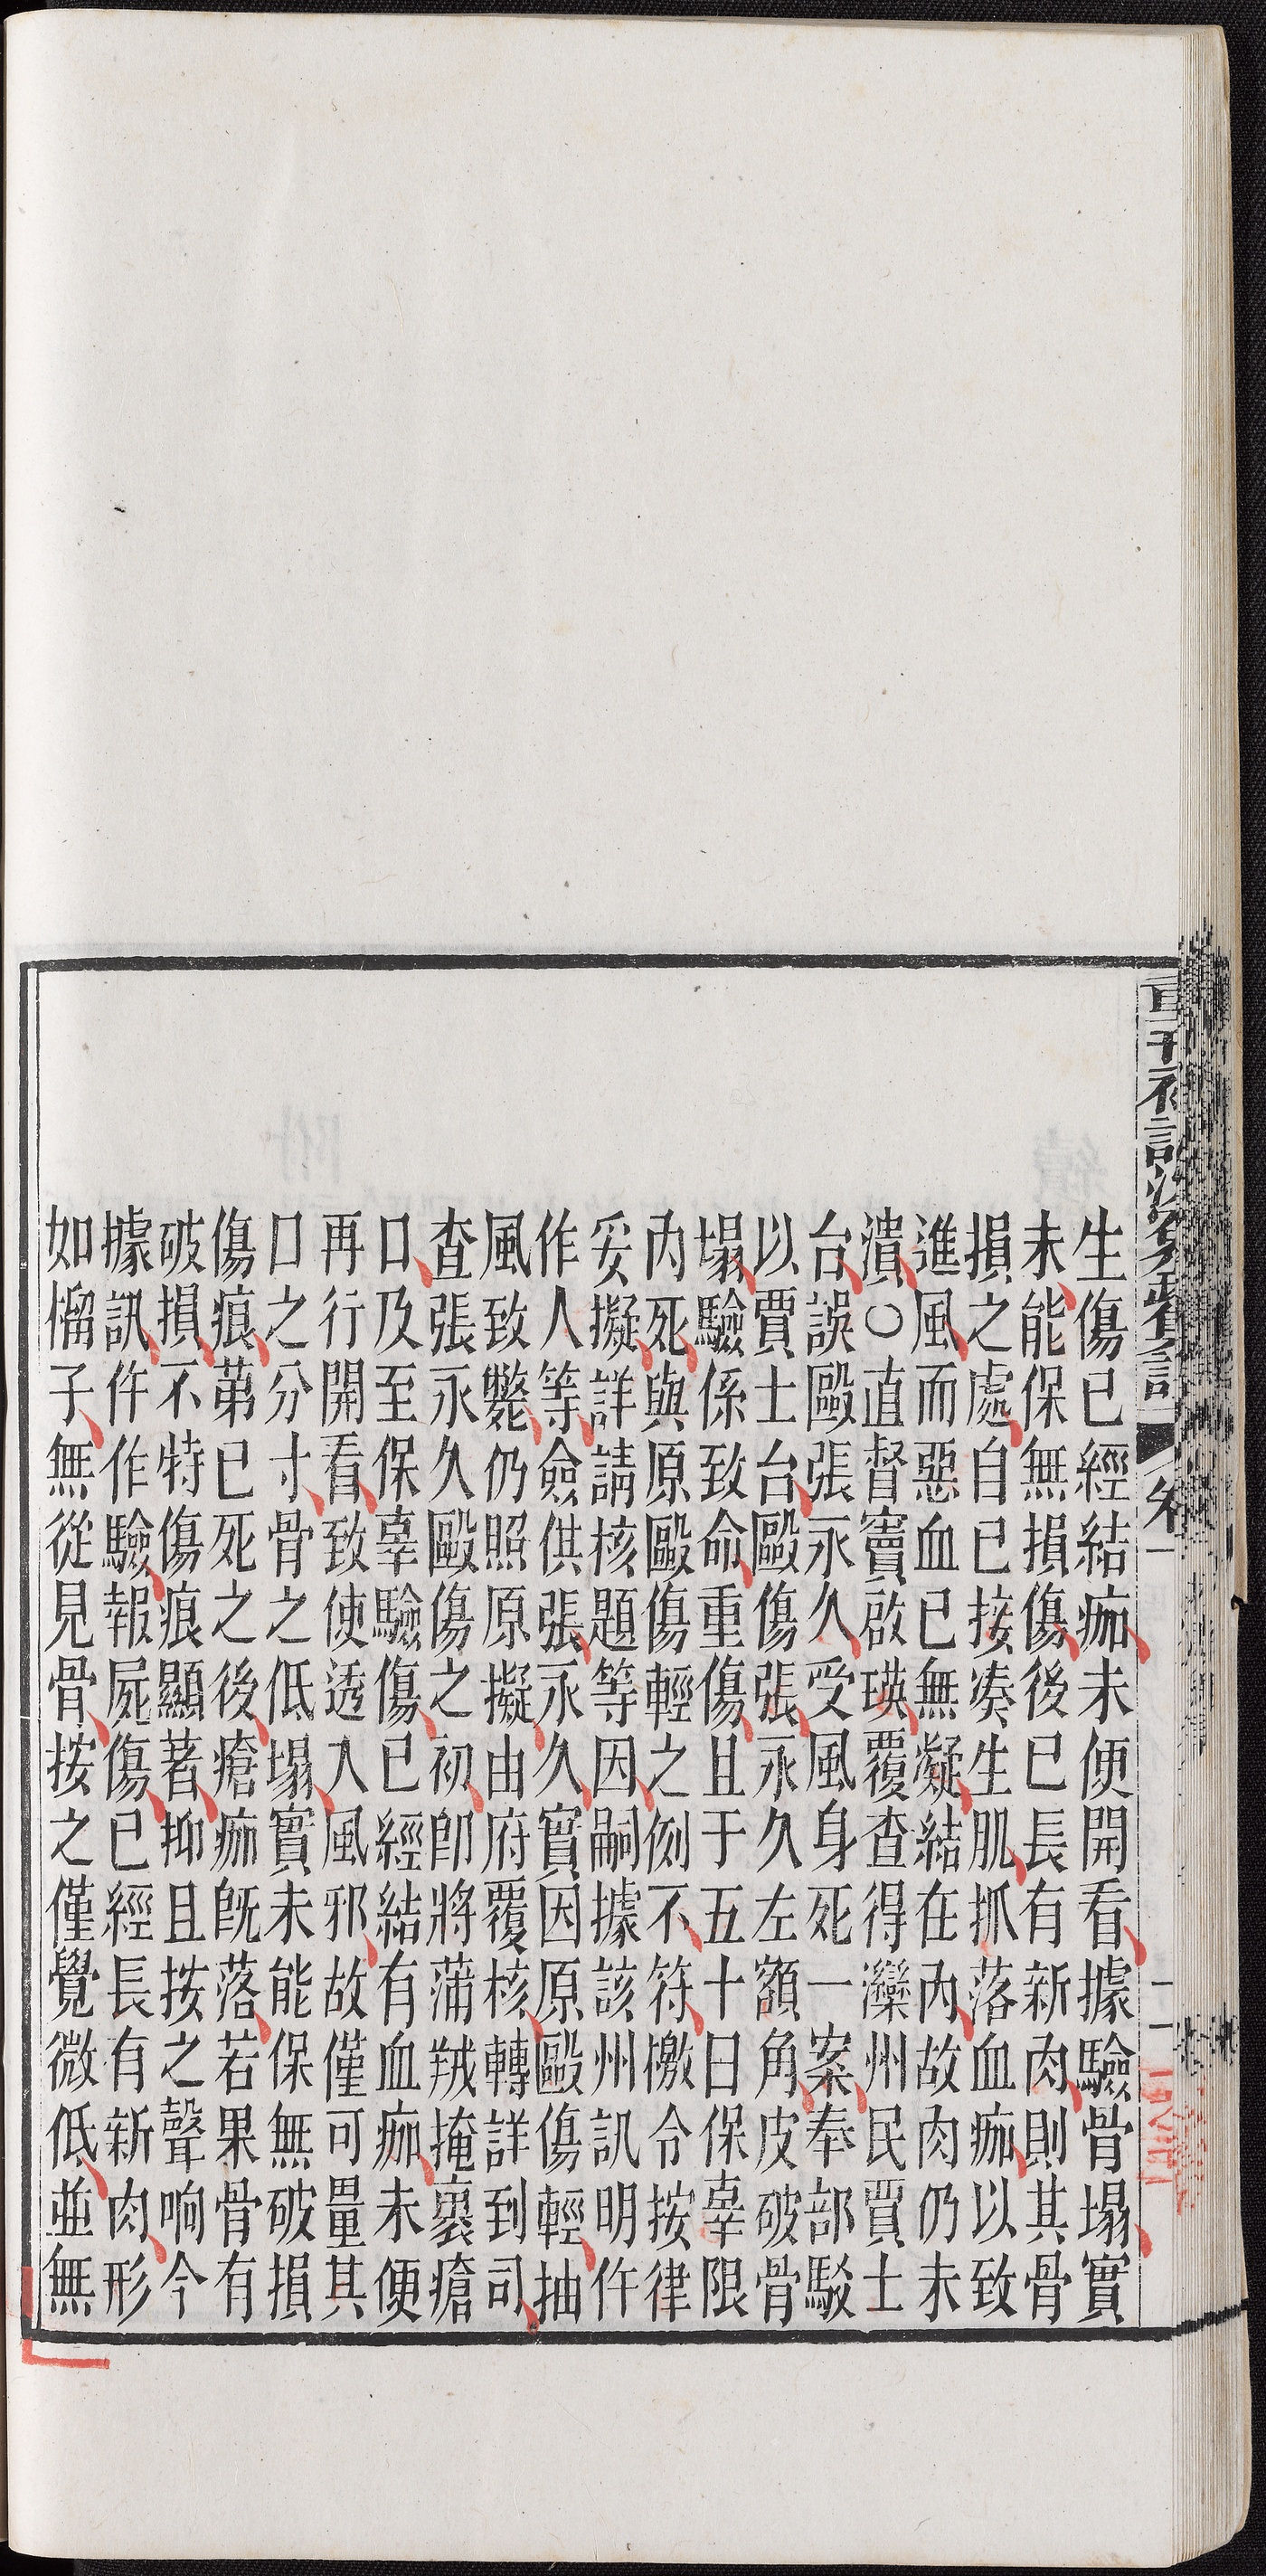 生傷已經結痂未便開看據驗骨塌實
未能保無損傷後已長有新肉則其骨
損之處自已接湊生肌抓落血痂以致
進風而惡血已無凝結在內故肉仍未
潰○直督竇啟瑛覆查得灤州民賈士
台誤毆張永久受風身死一案奉部駁
以賈士台毆傷張永久左額角皮破骨
塌驗係致命重傷且于五十日保辜限
內死與原毆傷輕之例不符檄令按律
妥擬詳請核題等因嗣據該州訊明仵
作人等僉供張永久實因原毆傷輕抽
風致斃仍照原擬由府覆核轉詳到司
查張永久毆傷之初卽將蒲羢掩裹瘡
口及至保辜驗傷已經結有血痂未便
再行開看致使透入風邪故僅可量其
口之分寸骨之低塌實未能保無破損
傷痕苐已死之後瘡痂旣落若果骨有
破損不特傷痕顯著抑且按之聲响今
據訊仵作驗報屍傷已經長有新肉形
如㯍子無從見骨按之僅覺微低並無